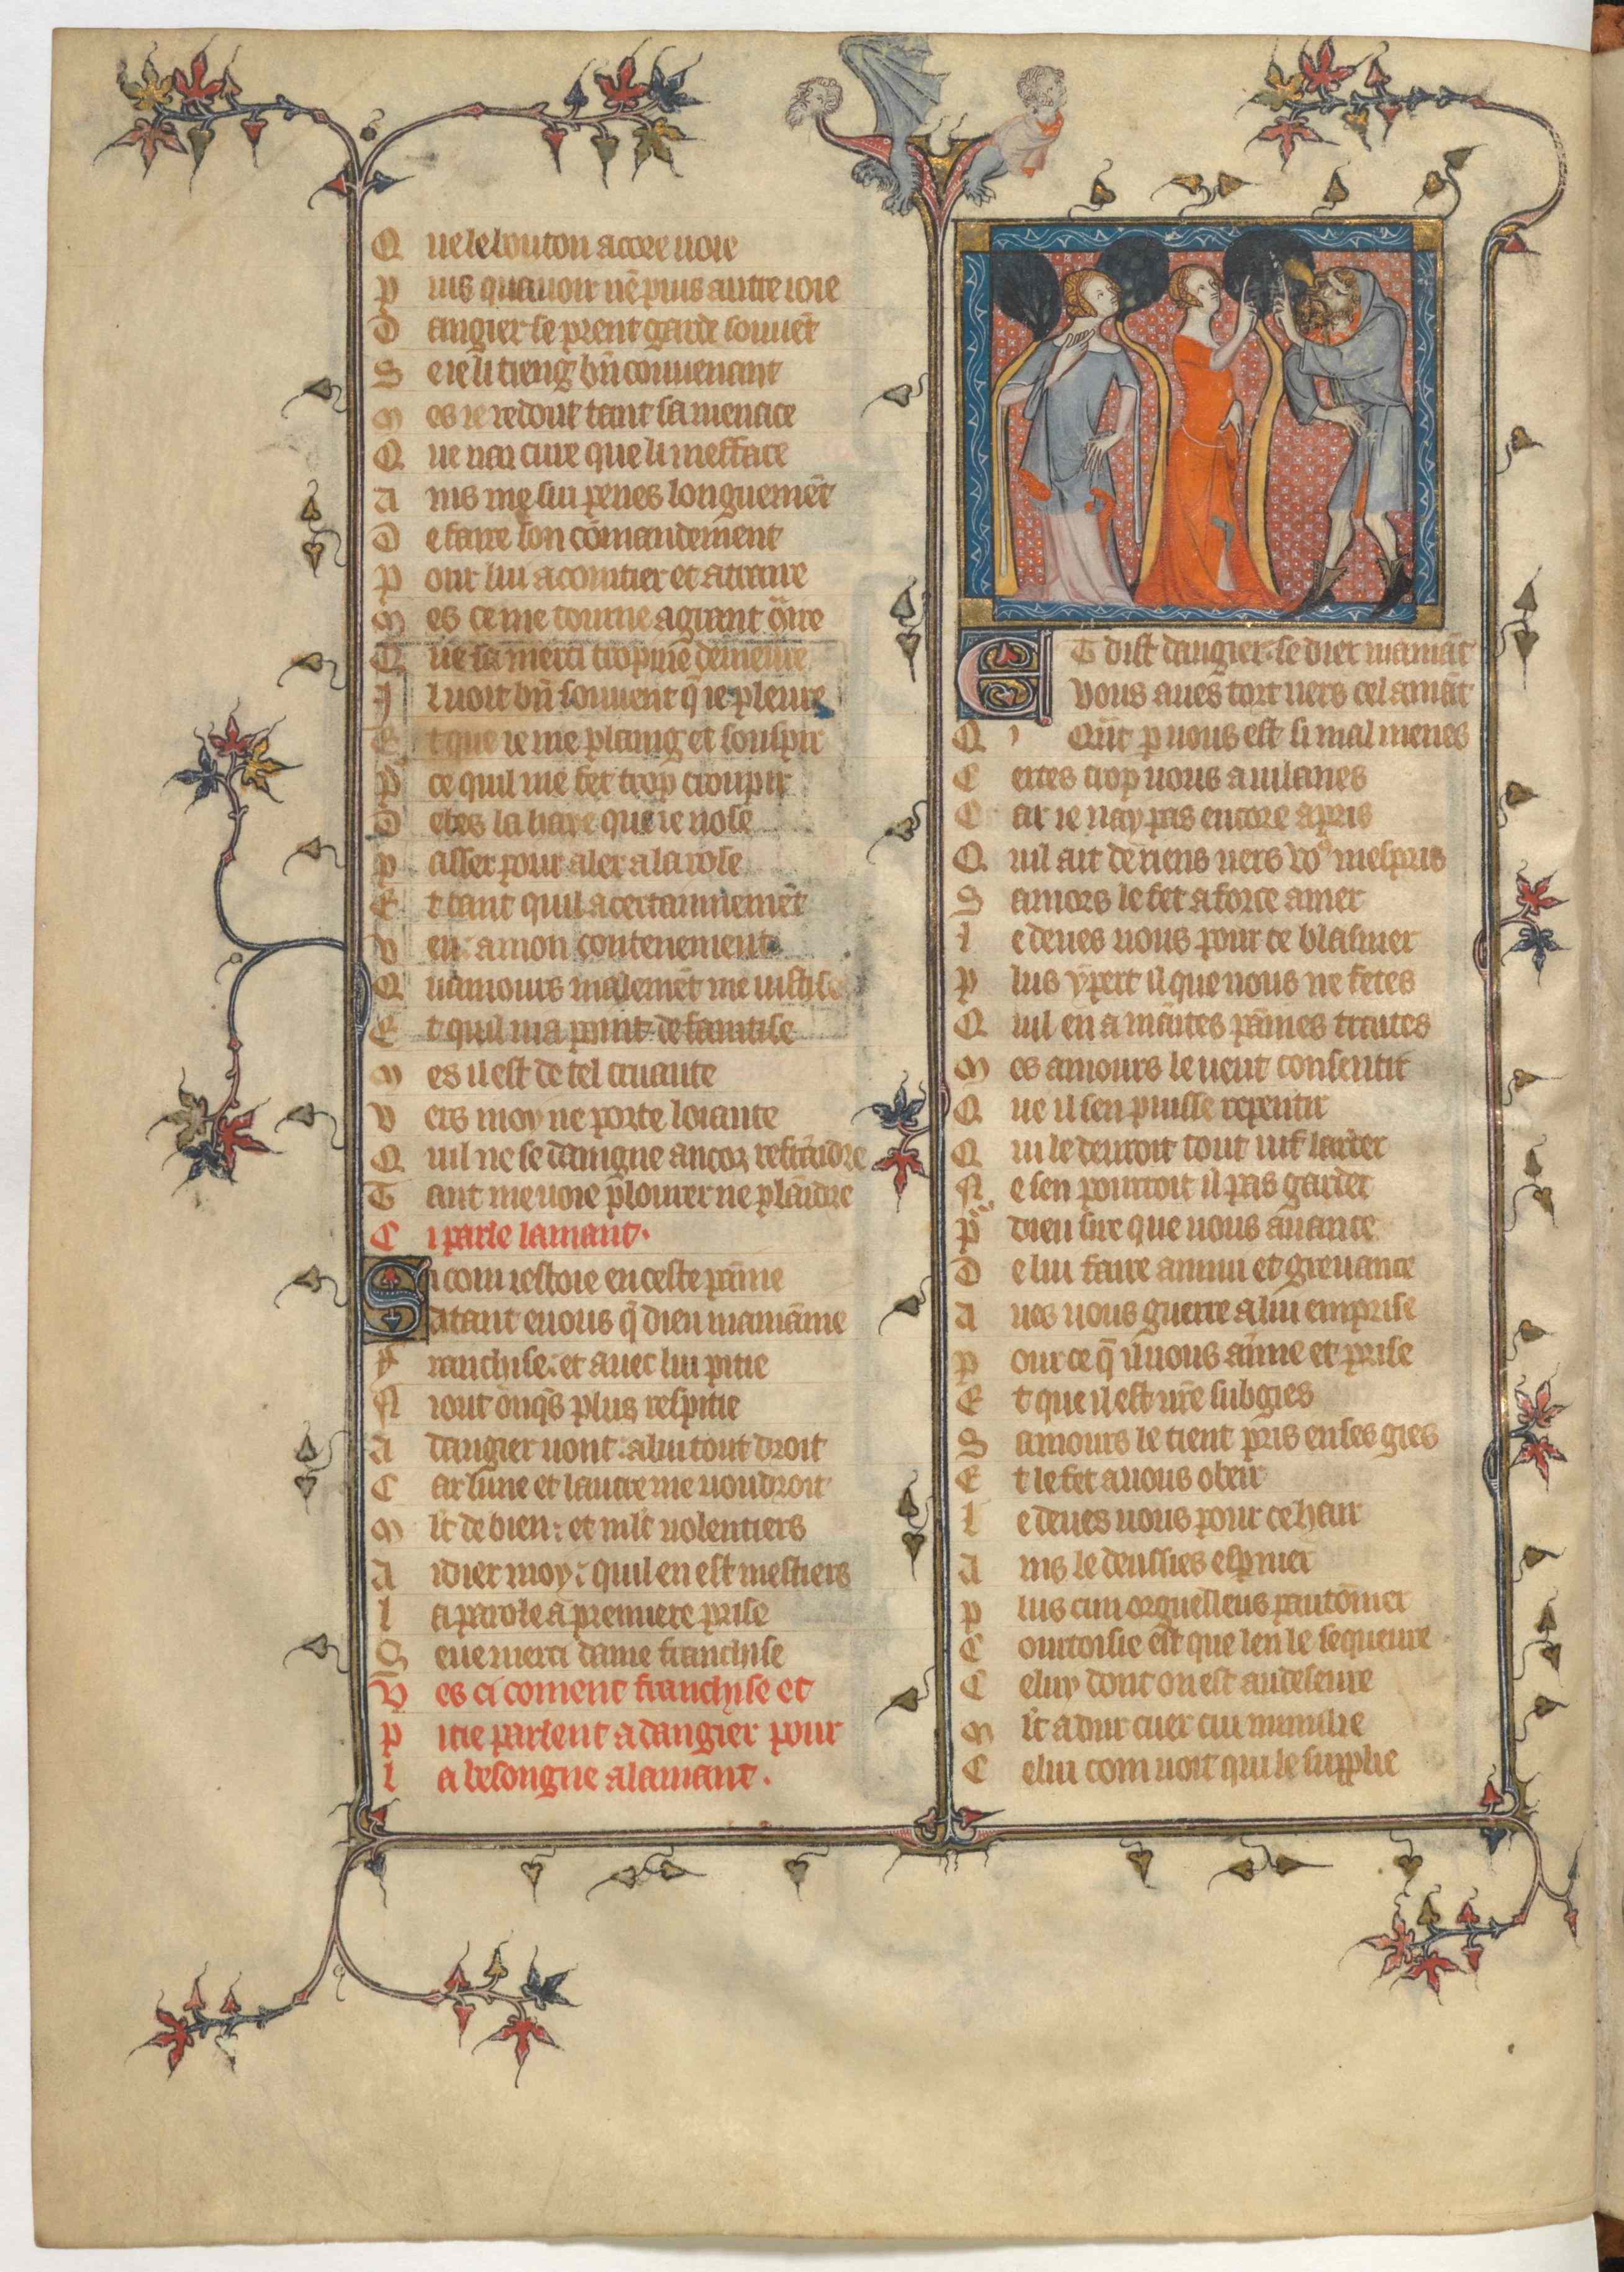 Q ue le bouton a core voie
P uis quauoir nē puis autre ioie
D angier se prent garde souuēt
S e ie li tieng bn̄ conuenant
M es ie redout tant sa menace
Q ue nai cure que li mefface
A ins me sui penes longuemēt
D e faire son cōmandement
P our lui acointier et atraire
M es ce me tourne a grant ꝯtre
Q ue sa merci trop me demeure
I l voit bn̄ souuent q̄ ie pleure
E t que ie me plaing et souspir
P ce quil me fet trop croupir
D eles la haie que ie nose
P asser pour aler a la rose
E t tant quil a certainnemēt
V eu a mon contenement
Q uamours malemēt me iustise
E t quil ni a point de faintise
M es il est de tel cruaute
V ers moy ne porte loiaute
Q uil ne se daingne ancor refraidre
T ant me voie plourer ne plaīdre
C i parle lamant.
Si com iestoie en ceste painne
Atant euous q̄ dieu mamainne
F ranchise. et auec lui pitie
N iout onq̄s plus respitie
A dangier uont. a lui tout droit
C ar lune et lautre me uoudroit
M lt de bien. et mlt uolentiers
A idier moy. quil en est mestiers
L a parole a premiere prise
S eue merci dame franchise
V es ci coment franchise et
P itie parlent a dangier pour
L a besongne a lamant.
ET dist dangier. se diex mamāt
Vous aues tort uers cel amāt
Q Qui p uous est si mal menes
C ertes trop uous auilanes
C ar ie nay pas encore apris
Q uil ait de riens uers voꝰ mespris
S amors le fet a force amer
L e deues uous pour ce blasmer
P lus y pert il que uous ne fetes
Q uil en a maintes painnes traites
M es amours le ueut consentir
Q ue il sen puisse repentir
Q ui le deuroit tout uif larder
N e sen pourroit il pas garder
P dieu sire que uous auance
D e lui faire annui et greuance
A ues uous guerre a lui emprise
P our ce q̄ il uous aime et prise
E t que il est ur̄e subgies
S amours le tient pris en ses gies
E t le fet a uous obeir
L e deues uous pour ce hair
A ins le deussies espnier
P lus cun orguelleus pautōnier
C ourtoisie est que len le sequeure
C eluy dont on est au deseure
M lt a dur cuer cui numilie
C elui com uoit qui le supplie